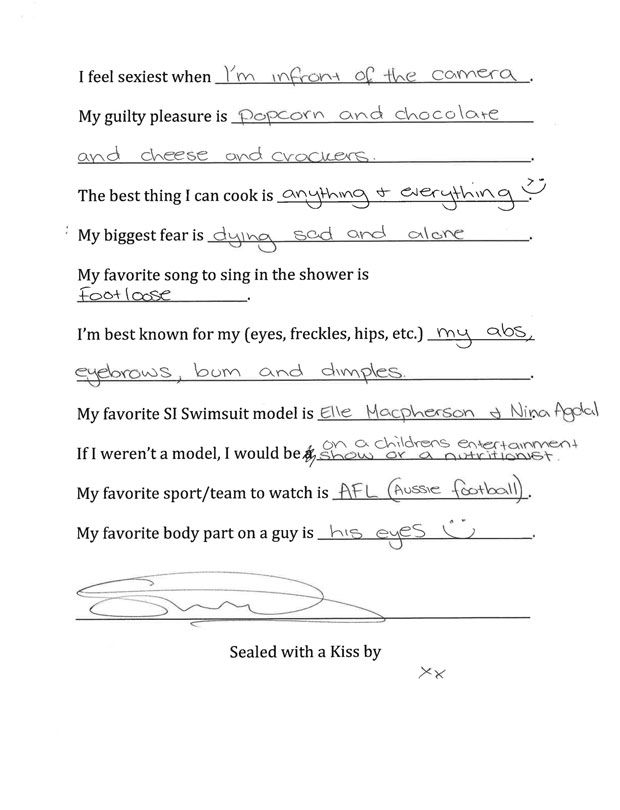 I feel sexiest when I'm infront of the camera.
My guilty pleasure is popcorn and chocolate
and cheese and crackers. .
The best thing I can cook is anything + everything.
My biggest fear is dying sad and alone.
My favorite song to sing in the shower is
Footloose.
I'm best known for my (eyes, freckles, hips, etc.) my abs,
eyebrows, bum and dimples. .
My favorite SI Swimsuit model is Elle Macpherson & Nina Agdal
If I weren't a model, I would be on a childrens entertainment
show or a nutritionist.
My favorite sport/team to watch is AFL (Aussie football).
My favorite body part on a guy is his eyes.
Sealed with a Kiss by
xx